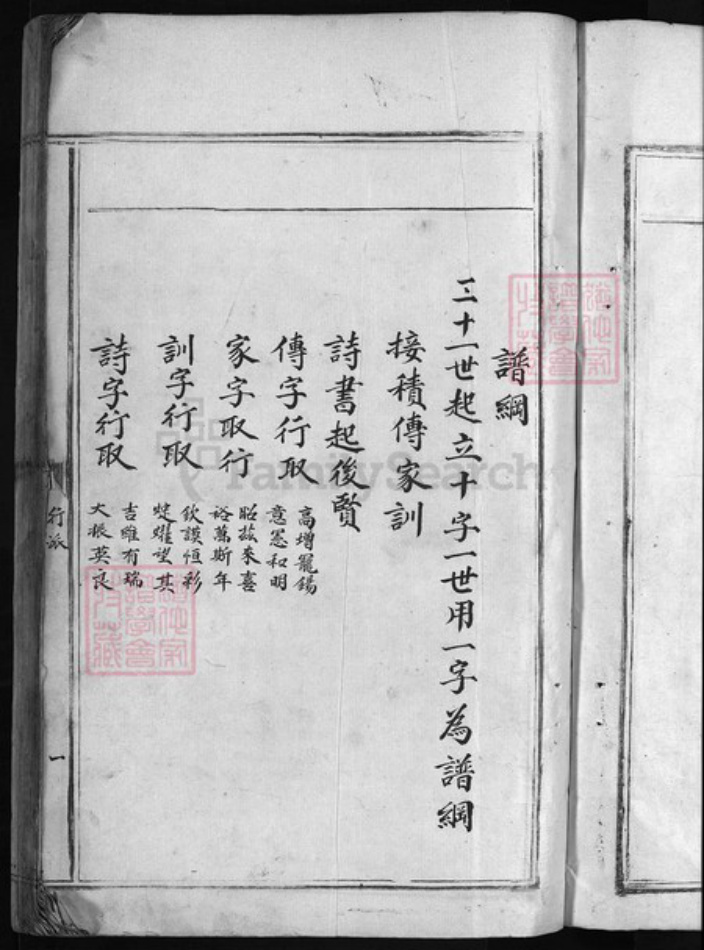 譜綱
三十一世起立十字一世用一字為譜綱
接積傳家訓
詩書起後賢
傳字行取
高增寵錫
意憲和明
家字取行
昭茲來喜
裕萬斯年
訓字行取
欽謨恒彩
燿望其
詩字行取
吉雖有瑞
大振英良
行派
一
FamilySearch